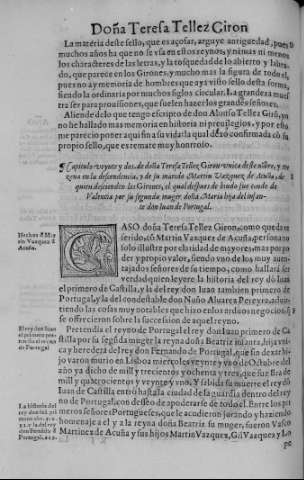 Doña Teresa Tellez Giron
La materia deste sello, que es açofar, arguye antiguedad, pues
muchos años ha que no se vsa en estos reynos, y menos ni menos
los characteres de las letras, y la tosquedad de lo abierto y labra-
do, que parece en los Girones, y mucho mas la figura de todo el,
pues no ay memoria de hombres que aya visto sello desta forma,
siendo la ordinaria por muchos siglos circular. La grandeza mues
tra ser para prouissiones, que suelen hazer los grandes señores.
Aliende de lo que tengo escripto de don Alonso Tellez Girõ, yo
no he hallado mas memoria en historia ni preuilegios, y por esso
me parecio poner aqui fin a su vida la qual dexo confirmada cõ su
proprio sello, que es remate muy honroso.
Capitulo veynte y dos, de doña Teresa Tellez Giron vnica deste nõbre, y no
gena en la descendencia, y de su marido Martin Vazquez de Acuña, de
quien descienden los Girones, el qual despues de biudo fue conde de
Valencia por su segunda muger doña Maria hija del infan-
te don Iuan de Portugal.
Hechos d' Mar
tin Vazquez d'
Acuña.
CASO doña Teresa Tellez Giron, como queda re
ferido, cõ Martin Vazquez de Acuña, persona no
solo illustre por claridad de mayores, mas por po
der y propio valor, siendo vno de los muy auen-
tajados señores de su tiempo, como hallara ser
verdad quien leyere la historia del rey dõ Iuan
el primero de Castilla, y la del rey don Iuan tambien primero de
Portugal, y la del condestable don Nuño Aluarez Pereyra, aduir-
tiendo las cosas muy notables que hizo en los arduos negocios q̃
se offrecieron sobre la succession de aquel reyno.
El rey don Iuan
el primero pre-
tende el reyno
de Portugal
Pretendia el reyno de Portugal el rey don Iuan primero de Ca-
stilla por su segũda muger la reyna doña Beatriz infanta, hija vni
ca y heredera del rey don Fernando de Portugal, que sin dexar hi
jo varon murio en Lisboa miercoles veynte y vno de Octubre del
año ya dicho de mill y trezientos y ochenta y tres, que fue era de
mill y quatrocientos y veynte y vno. Y sabida su muerte el rey dõ
Iuan de Castilla entrò hasta la ciudad de la guardia dentro del rey
no de Portugal, con desseo de apoderarse de todo el. Entre los pri
meros señores Portugueses, que le acudieron jurando y haziendo
homenaje a el y a la reyna doña Beatriz su muger, fueron Vasco
Martinez de Acuña y sus hijos Martin Vazquez, Gil Vazquez y Lo
La historia del
rey don Iuã pri
mero
del rey
don
Portugal
pe